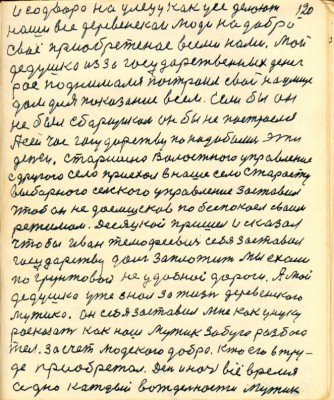 120
и содвора на улицу как усе делают
наши все деревенския люди на добро
своё приобретеное всеми нами. Мой
дедушко из за государственных денег
рое поднимался построил свой на улице
дом для показание всем. Если бы он
не был сборщиком он бы не построил
А сей час государству понадобились эти
деньги, старшино Волостного управление
с другого село приехал в наше село старосту
выборного селского управление заставил
чтоб он не доемщсков побеспокоел своим
режимом. Десяцкой пришел и сказал
чтобы Иван темофеевич себя заставил
государству долг заплотит мы ехали
по грунтовой не удобной дороги. А мой
дедушко уже знал за жизн деревенского
мужико. Он себя заставил мне как унуку
расказат как наш мужик забуго разбого
тел. За счет людского добро. Кто его в тру-
де приобретал. Ден и ноч всё время
седно каждый вожделности Мужик